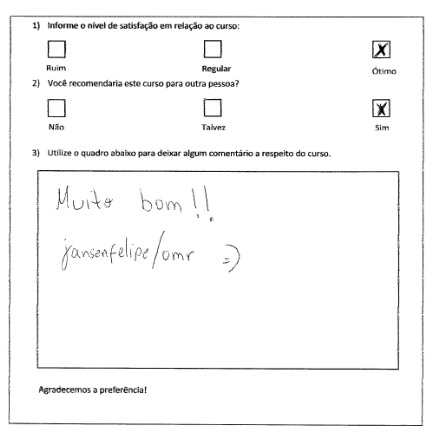 1) Informe o nível de satisfação em relação ao curso:
X
Ruim Regular Ótimo
2) Você recomendaria este curso para outra pessoa?
X
Não Talvez Sim
3) Utilize o quadro abaixo para deixar algum comentário a respeito do curso.
Muito bom!!
jansenfelipe/omr =)
Agradecemos a preferência!